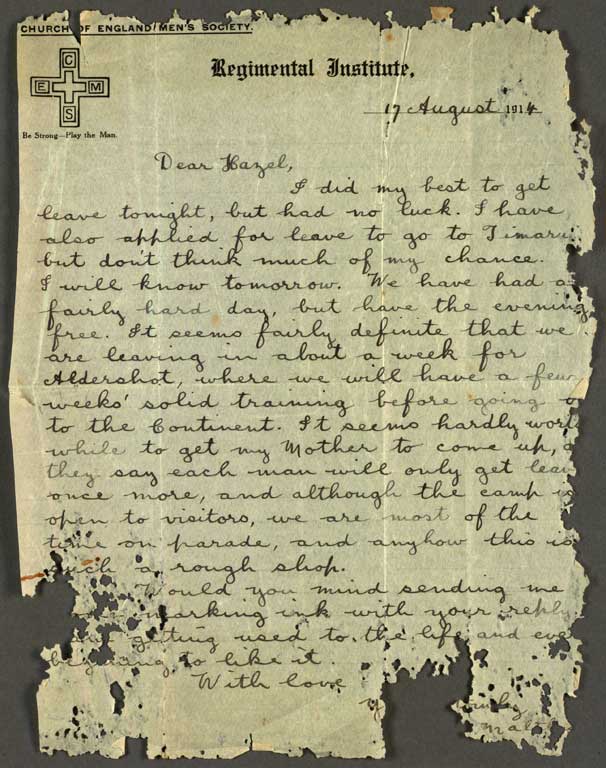 CHURCH OF ENGLAND MEN'S SOCIETY.
C
E M
S
Be Strong—Play the Man.
Regimental Institute,
17 August 1914
Dear Hazel,
I did my best to get
leave tonight, but had no luck. I have
also applied for leave to go to Timaru
but don't think much of my chance.
I will know tomorrow. We have had a
fairly hard day, but have the evening
free. It seems fairly definite that we
are leaving in about a week for
Aldershot, where we will have a few
weeks' solid training before going
to the Continent. It seems hardly
while to get my Mother to come up,
they say each man will only get
once more, and although the camp is
open to visitors, we are most of the
time on parade, and anyhow this is
such a rough shop.
Would you mind sending me
marking ink with your reply
getting used to the life and
beginning to like it.
With love